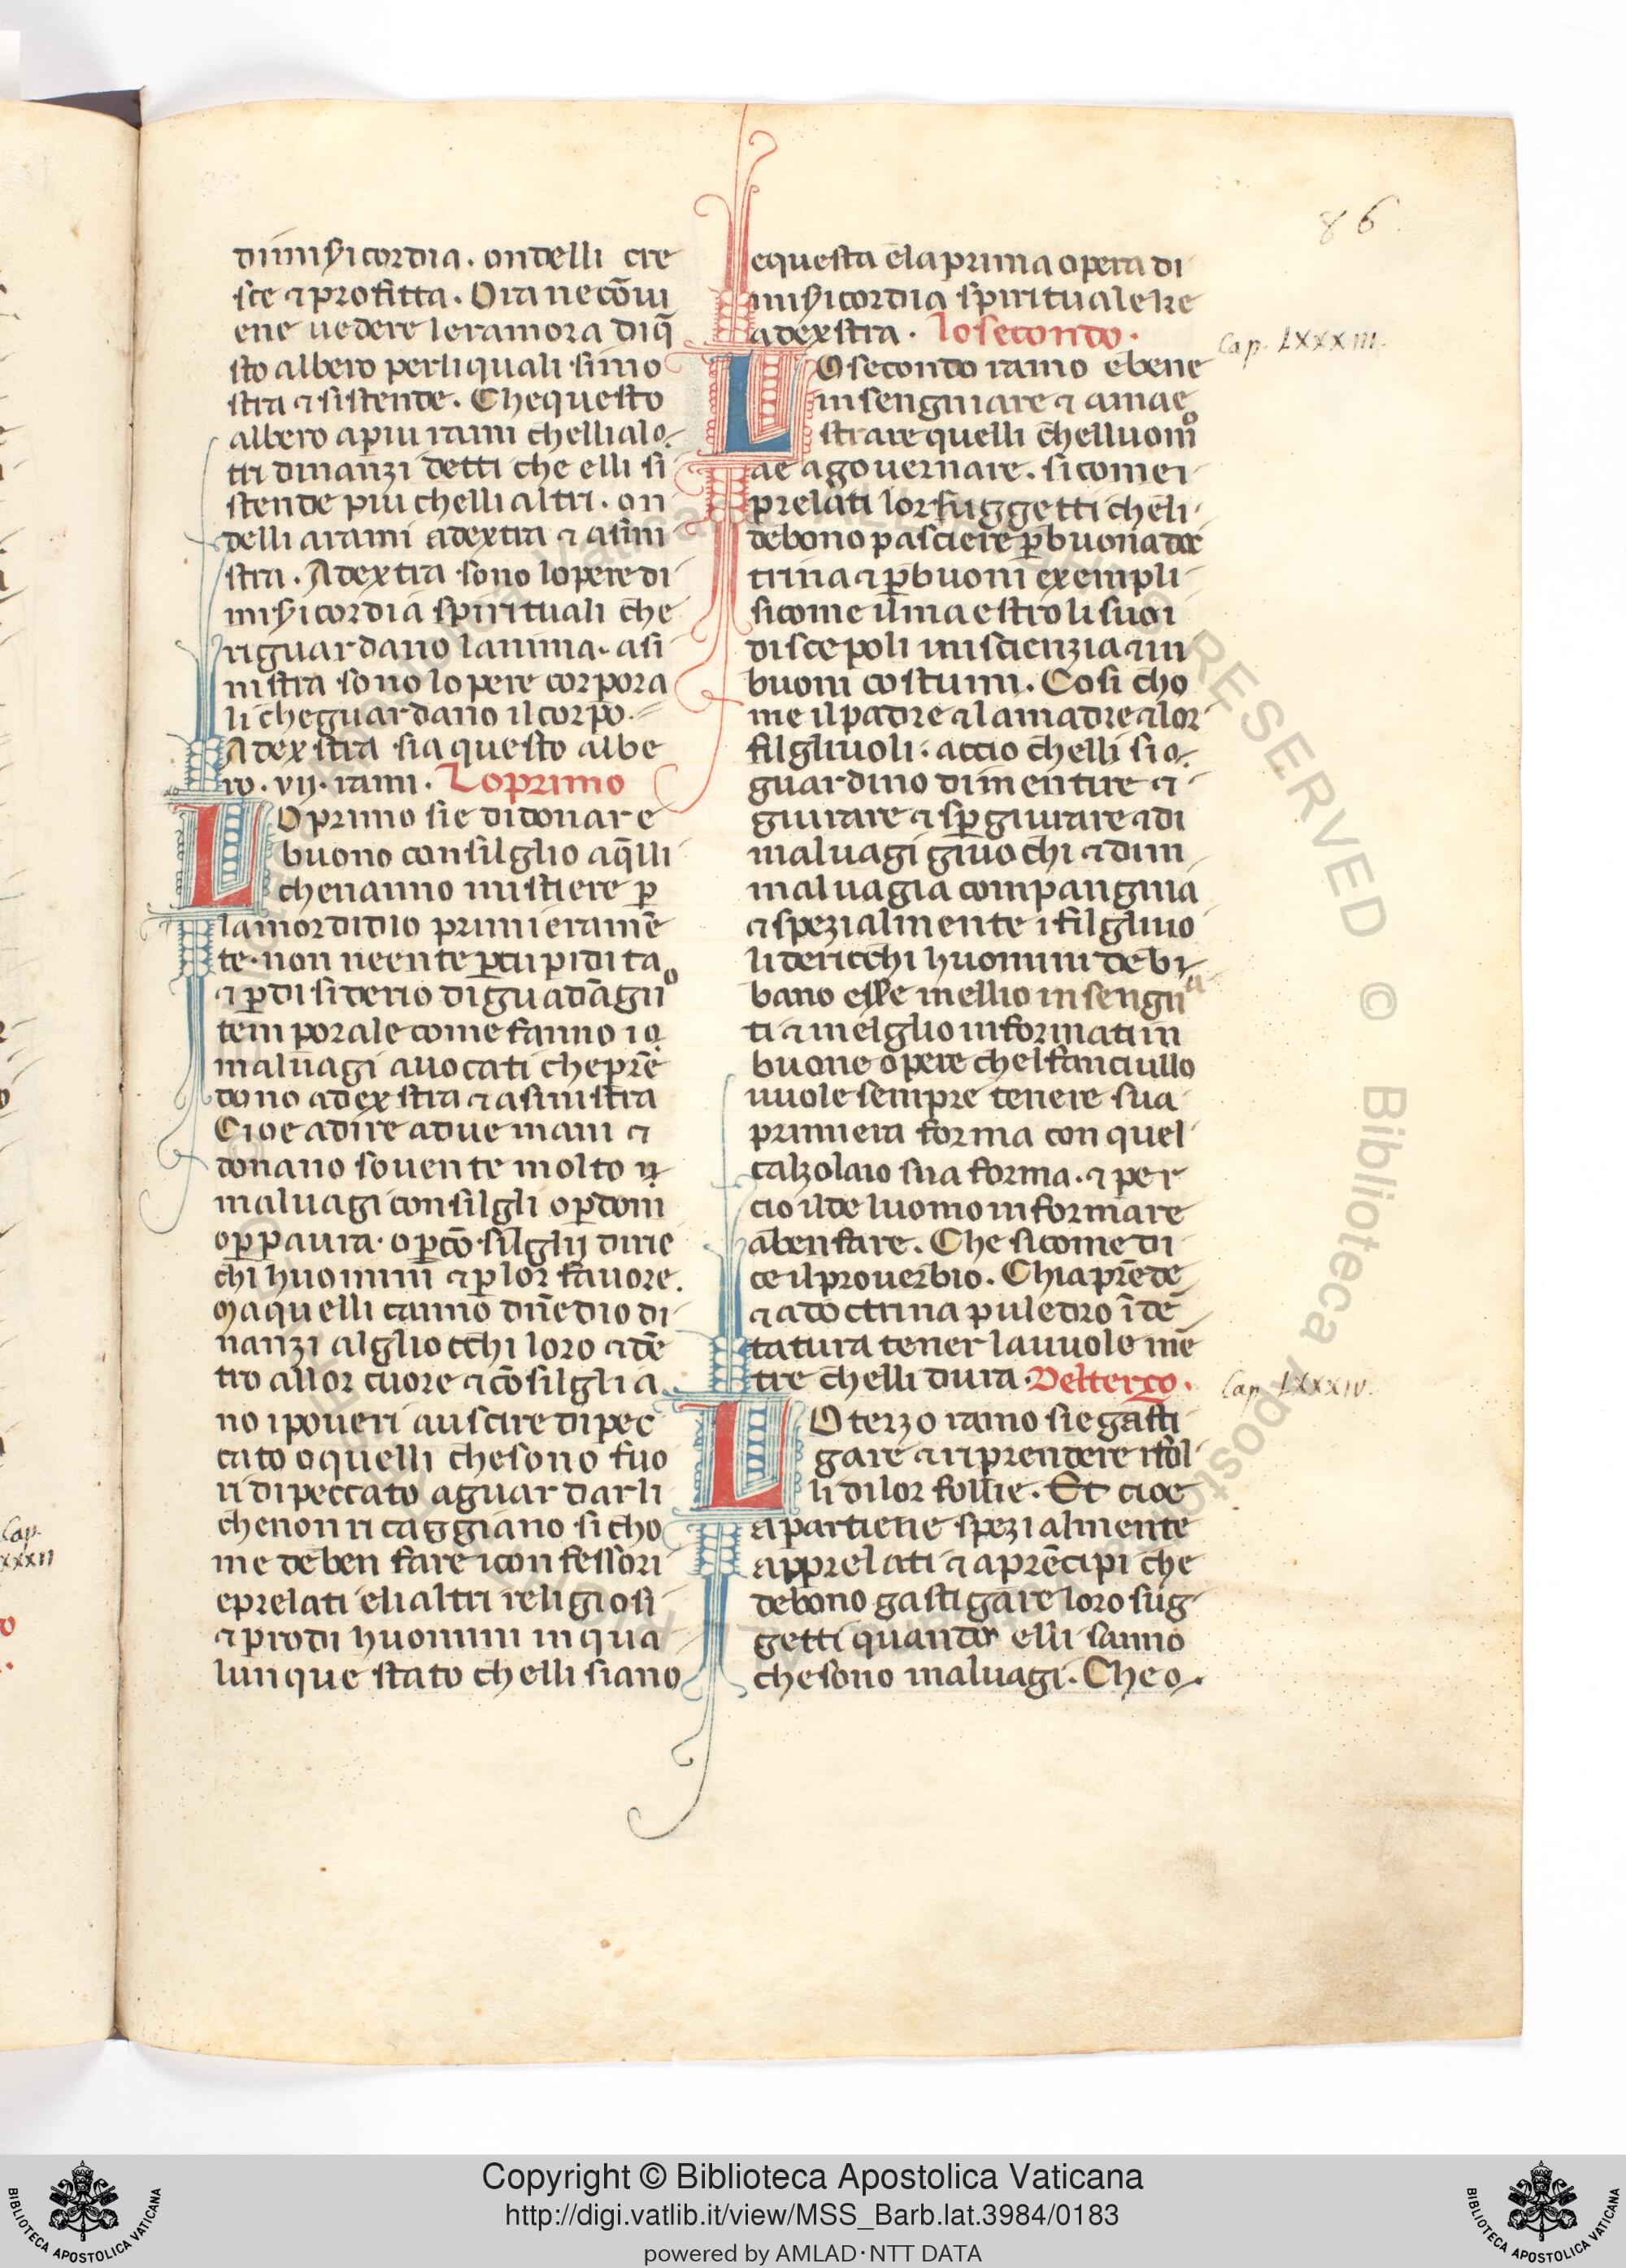 86
di misericordia. ondelli cre
sce ⁊ profitta. Ora ne cōui
ene uedere le ramora di q̄
sto albero per li quali si mo
stra ⁊ si stende. Che questo
albero a piu rami chelli al
tri dinanzi detti che elli si
stende piu chelli altri. on
delli a rami a dextra ⁊ a sini
stra. A dextra sono lopere di
misericordia spirituali che
riguardano lanima. a si
nistra sono lopere corpora
li che guardano il corpo.
A dexstra si a questo albe
ro. vij. rami. Lo primo
LO primo sie di donare
buono consilglio a q̄lli
chenanno mistiere ꝑ
lamor di dio primieramē
te. non neente ꝑ cupidita
⁊ ꝑ disiderio di guadāgnio
temporale come fanno i
maluagi auocati che prē
dono a dexstra ⁊ a sinistra
Cioe a dire a due mani ⁊
donano souente molto
maluagi consilgli o ꝑ doni
o ꝑ paura. o ꝑ cōsilglij di ric
chi huomini ⁊ ꝑ lor fauore.
Ma quelli canno dn̄edio di
nanzi algli occhi loro ⁊ dē
tro allor cuore ⁊ cōsilglia
no i poueri a uscire di pec
cato o quelli che sono fuo
ri di peccato a guardarli
che non ricaggiano si cho
me deben fare i confessori
e prelati e li altri religiosi
⁊ prodi huomini in qua
lunque stato chelli siano
e questa e la prima opera di
misericordia spirituale ke
a dexstra. lo secondo.
Cap. LXXXIII.
LO secondo ramo e bene
insengniare ⁊ amae
strare quelli chelluomo
ae a gouernare. si come i
prelati lor suggetti cheli
debono pasciere ꝑ buona doc
trina ⁊ ꝑ buoni exempli
si come il maestro li suoi
discepoli in iscienzia ⁊ in
buoni costumi. Cosi cho
me il padre ⁊ la madre ⁊ lor
filgliuoli. accio chelli si
guardino di mentire ⁊
giurare ⁊ sꝑgiurare ⁊ di
maluagi giuochi ⁊ dim
maluagia compangnia
⁊ spezialmente i filgliuo
li de ricchi huomini debi
bano esse mellio insengnia
ti ⁊ melglio informati in
buone opere chel fanciullo
uuole sempre tenere sua
primiera forma con quel
calzolaio sua forma. ⁊ per
cio il de luomo informare
a ben fare. Che si come di
ce il prouerbio. Chi aprēde
⁊ adoctrina puledro ī dē
tatura tener la uuole mē
tre chelli dura. Del terzo.
Cap. LXXXIV.
LO terzo ramo sie gasti
gare ⁊ riprendere i fol
li di lor follie. Et cioe
apartiene spezialmente
apprelati ⁊ a prēcipi che
debono gastigare loro sug
getti quando elli sanno
che sono maluagi. Che
Cap.
XXXII
Copyright © Biblioteca Apostolica Vaticana
http://digi.vatlib.it/view/MSS_Barb.lat.3984/0183
powered by AMLAD·NTT DATA
BIBLIOTECA APOSTOLICA VATICANA
BIBLIOTECA APOSTOLICA VATICANA